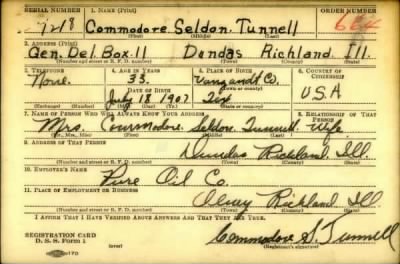 SERIAL NUMBER 1. NAME (Print) ORDER NUMBER
1218 Commodore Seldon Tunnell 664
(First) (Middle) (Last)
2. ADDRESS (Print)
Gen. Del. Box 11 Dundas Richland Ill.
(Number and street or R. F. D. number) (Town) (County) (State)
3. TELEPHONE 4. AGE IN YEARS 5. PLACE OF BIRTH 6. COUNTRY OF CITIZENSHIP
None. 33. Vanzandt Co.
DATE OF BIRTH (Town or county)
July 18 1907 Tex U.S.A
(Exchange) (Number) (Mo.) (Day) (Yr.) (State or country)
7. NAME OF PERSON WHO WILL ALWAYS KNOW YOUR ADDRESS 8. RELATIONSHIP OF THAT PERSON
Mrs. Commodore Seldon Tunnell Wife
(Mr., Mrs., Miss) (First) (Middle) (Last)
9. ADDRESS OF THAT PERSON
Dundas Richland Ill.
(Number and street or R. F. D. number) (Town) (County) (State)
10. EMPLOYER'S NAME
Pure Oil Co.
11. PLACE OF EMPLOYMENT OR BUSINESS
Olney Richland Ill.
(Number and street or R. F. D. number) (Town) (County) (State)
I AFFIRM THAT I HAVE VERIFIED ABOVE ANSWERS AND THAT THEY ARE TRUE.
REGISTRATION CARD
D. S. S. Form 1 Commodore S. Tunnell
(Registrant's signature)